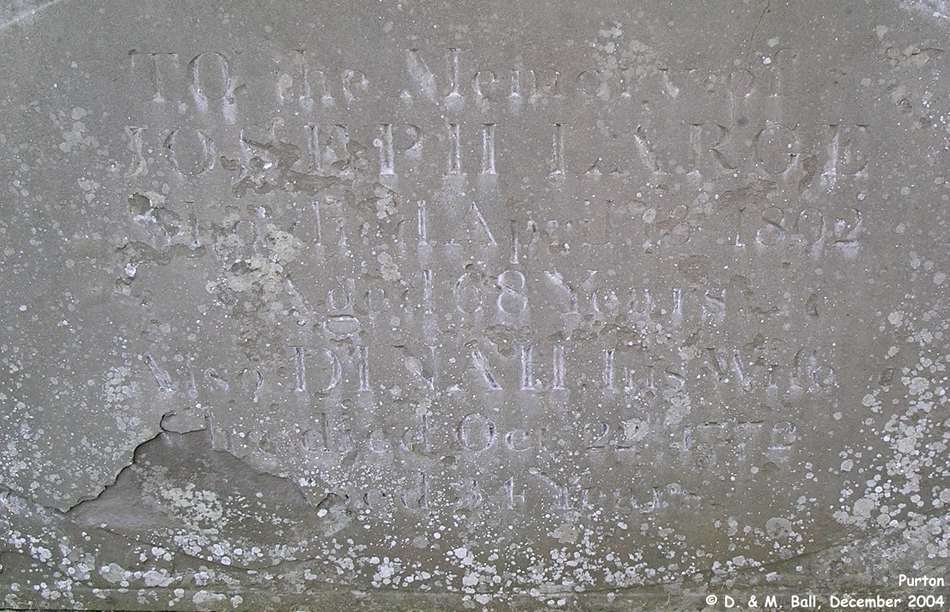 TO the Memory of
JOSEPH LARGE
died April 1802
Aged 68 Years
Also DINAH his Wife
She died Oct 22 1772
Aged 34 Years
Purton
© D. & M. Ball. December 2004